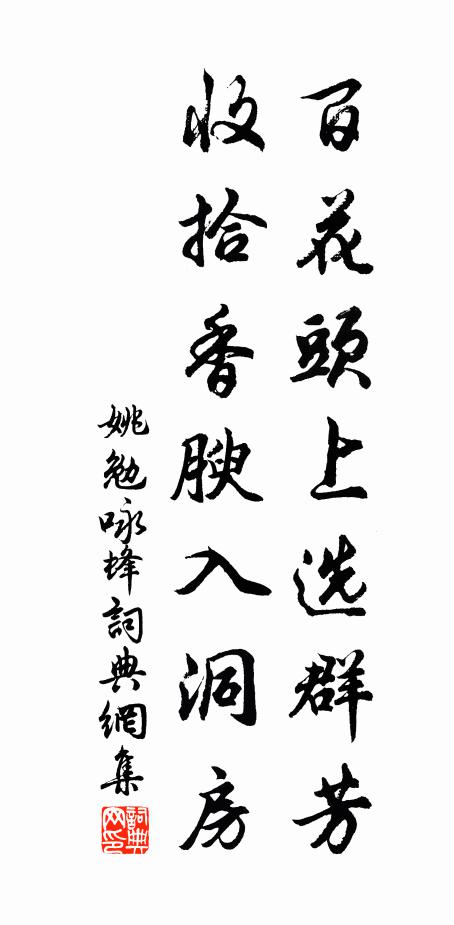 百花頭上选群芳
收拾香腴入洞房
姚勉咏蜂詞典網集
詞典网印